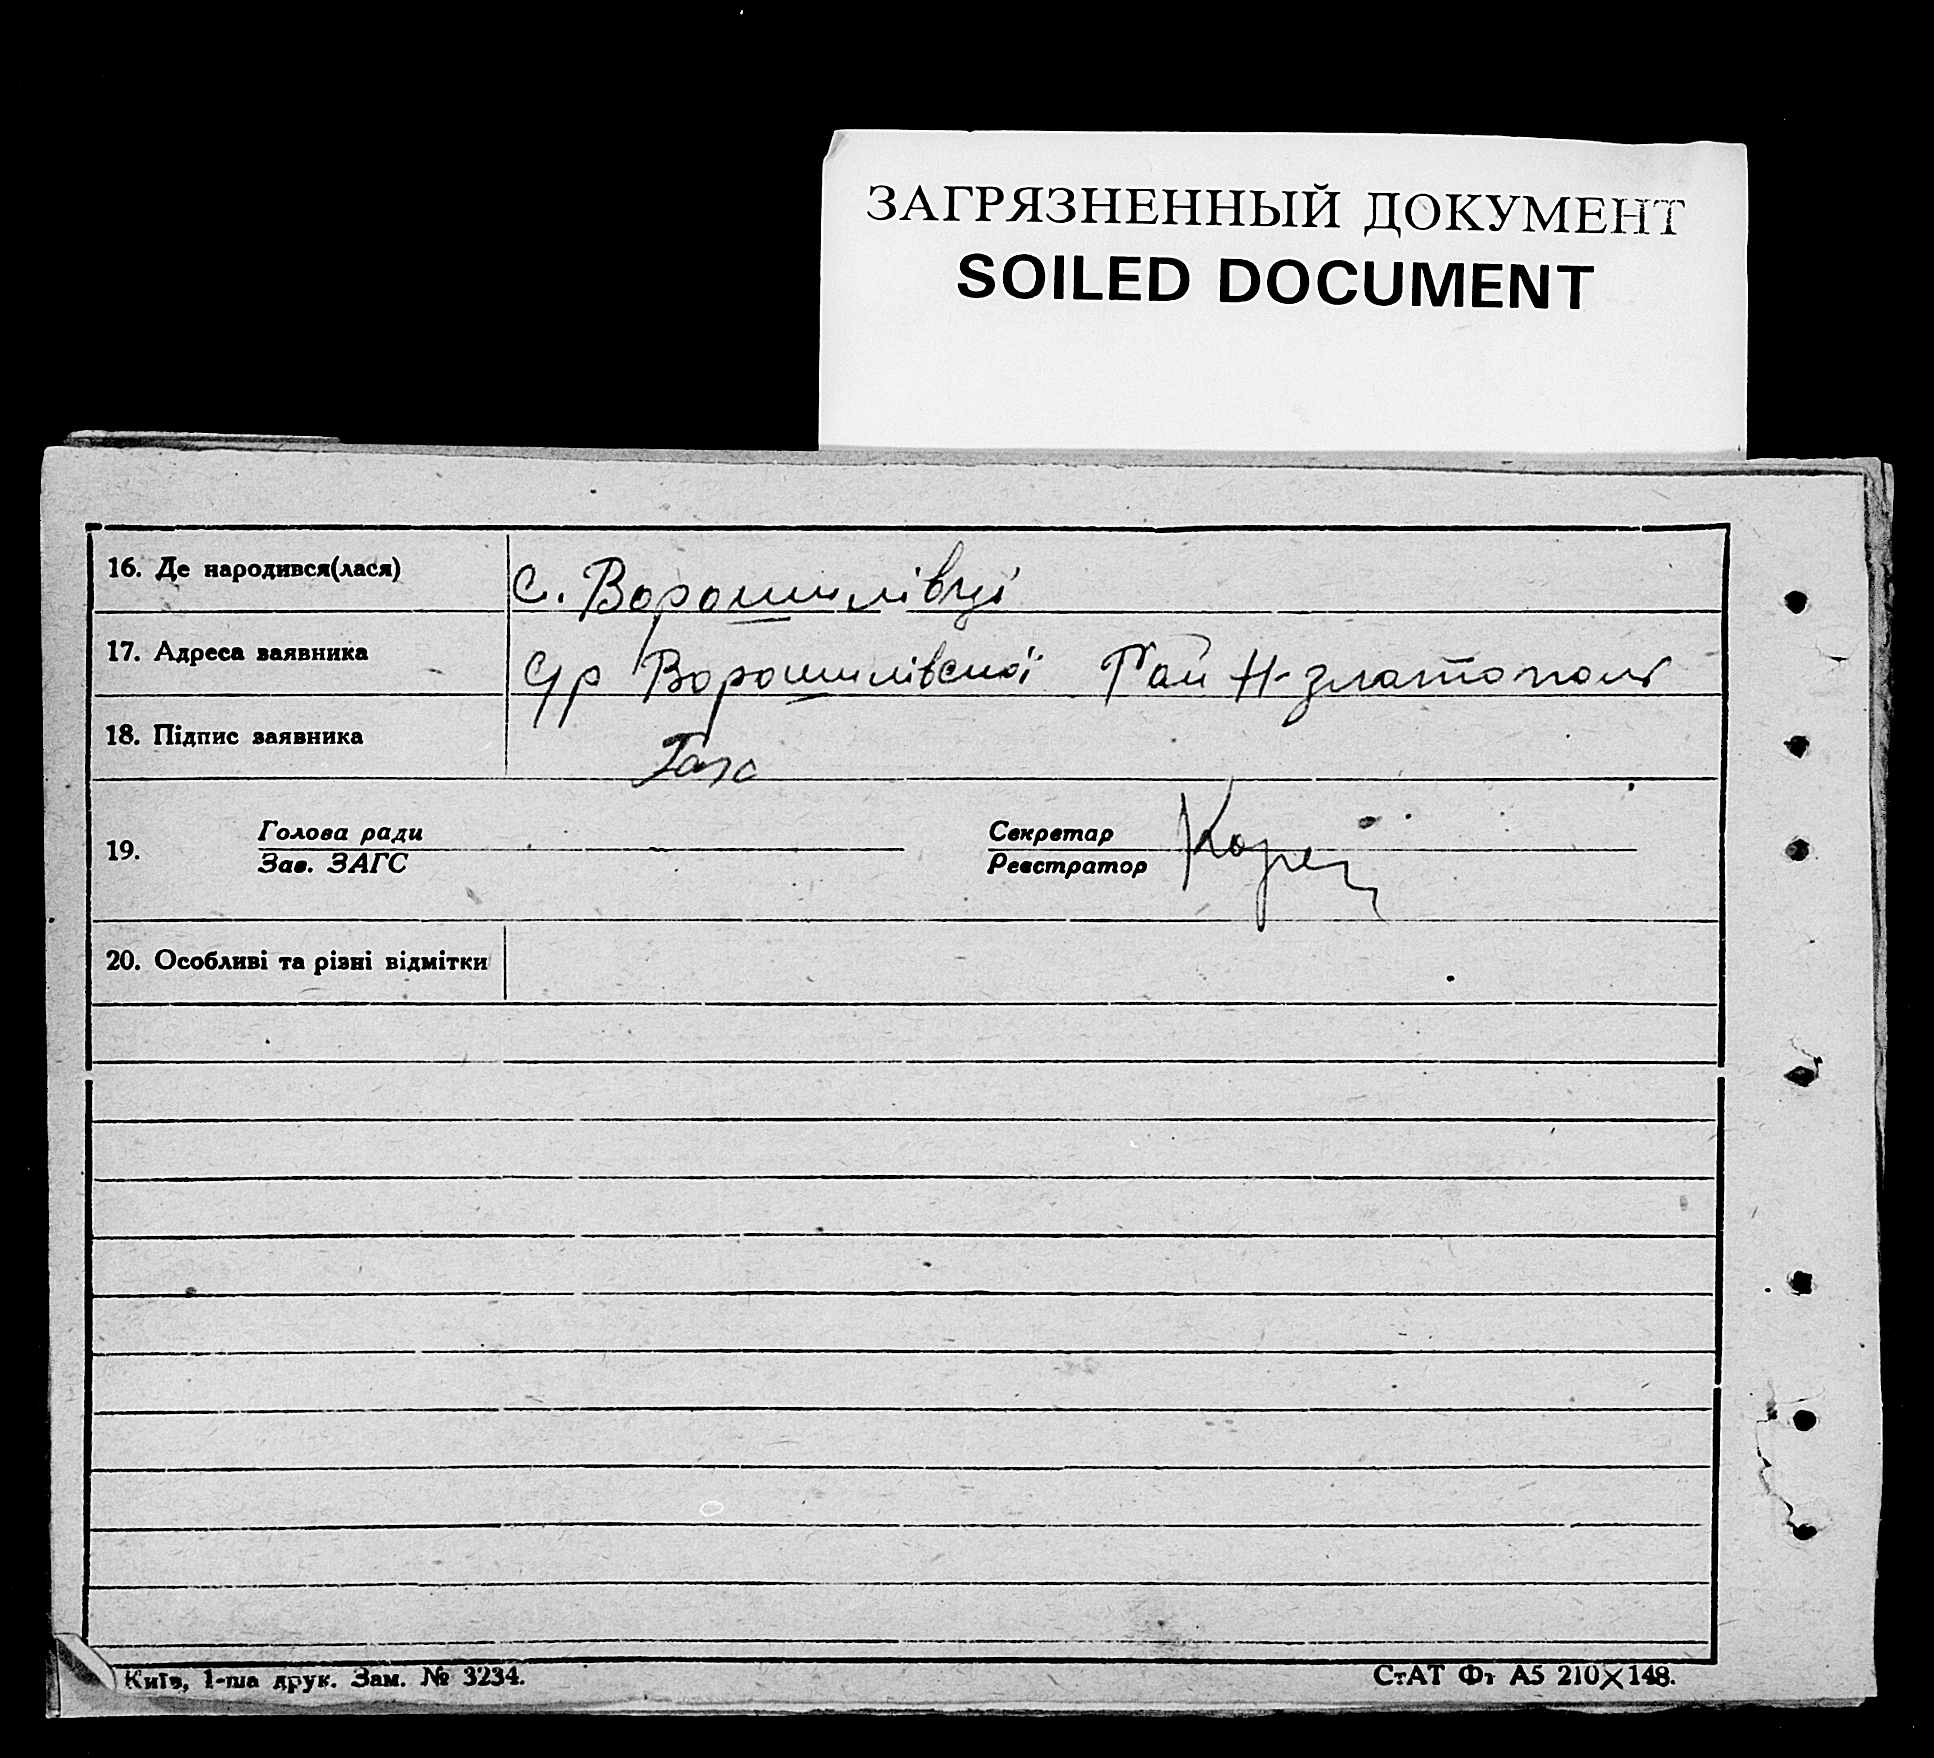 ЗАГРЯЗНЕННЫЙ ДОКУМЕНТ
SOILED DOCUMENT
16. Де народився(лася) с. Ворошилівці
17. Адреса заявника с/р Ворошилівської Рай Н-Златополь
18. Підпис заявника
19. Голова ради
Зав. ЗАГС
Секретар
Реєстратор
20. Особливі та різні відмітки
Київ, 1-ша друк. Зам. № 3234.
СтАТ Фт А5 210×148.